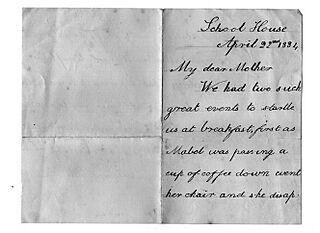 School House
April 22nd 1884
My dear Mother
We had two such
great events to startle
us at breakfast, first as
Mabel was passing a
cup of coffee down went
her chair and she disap